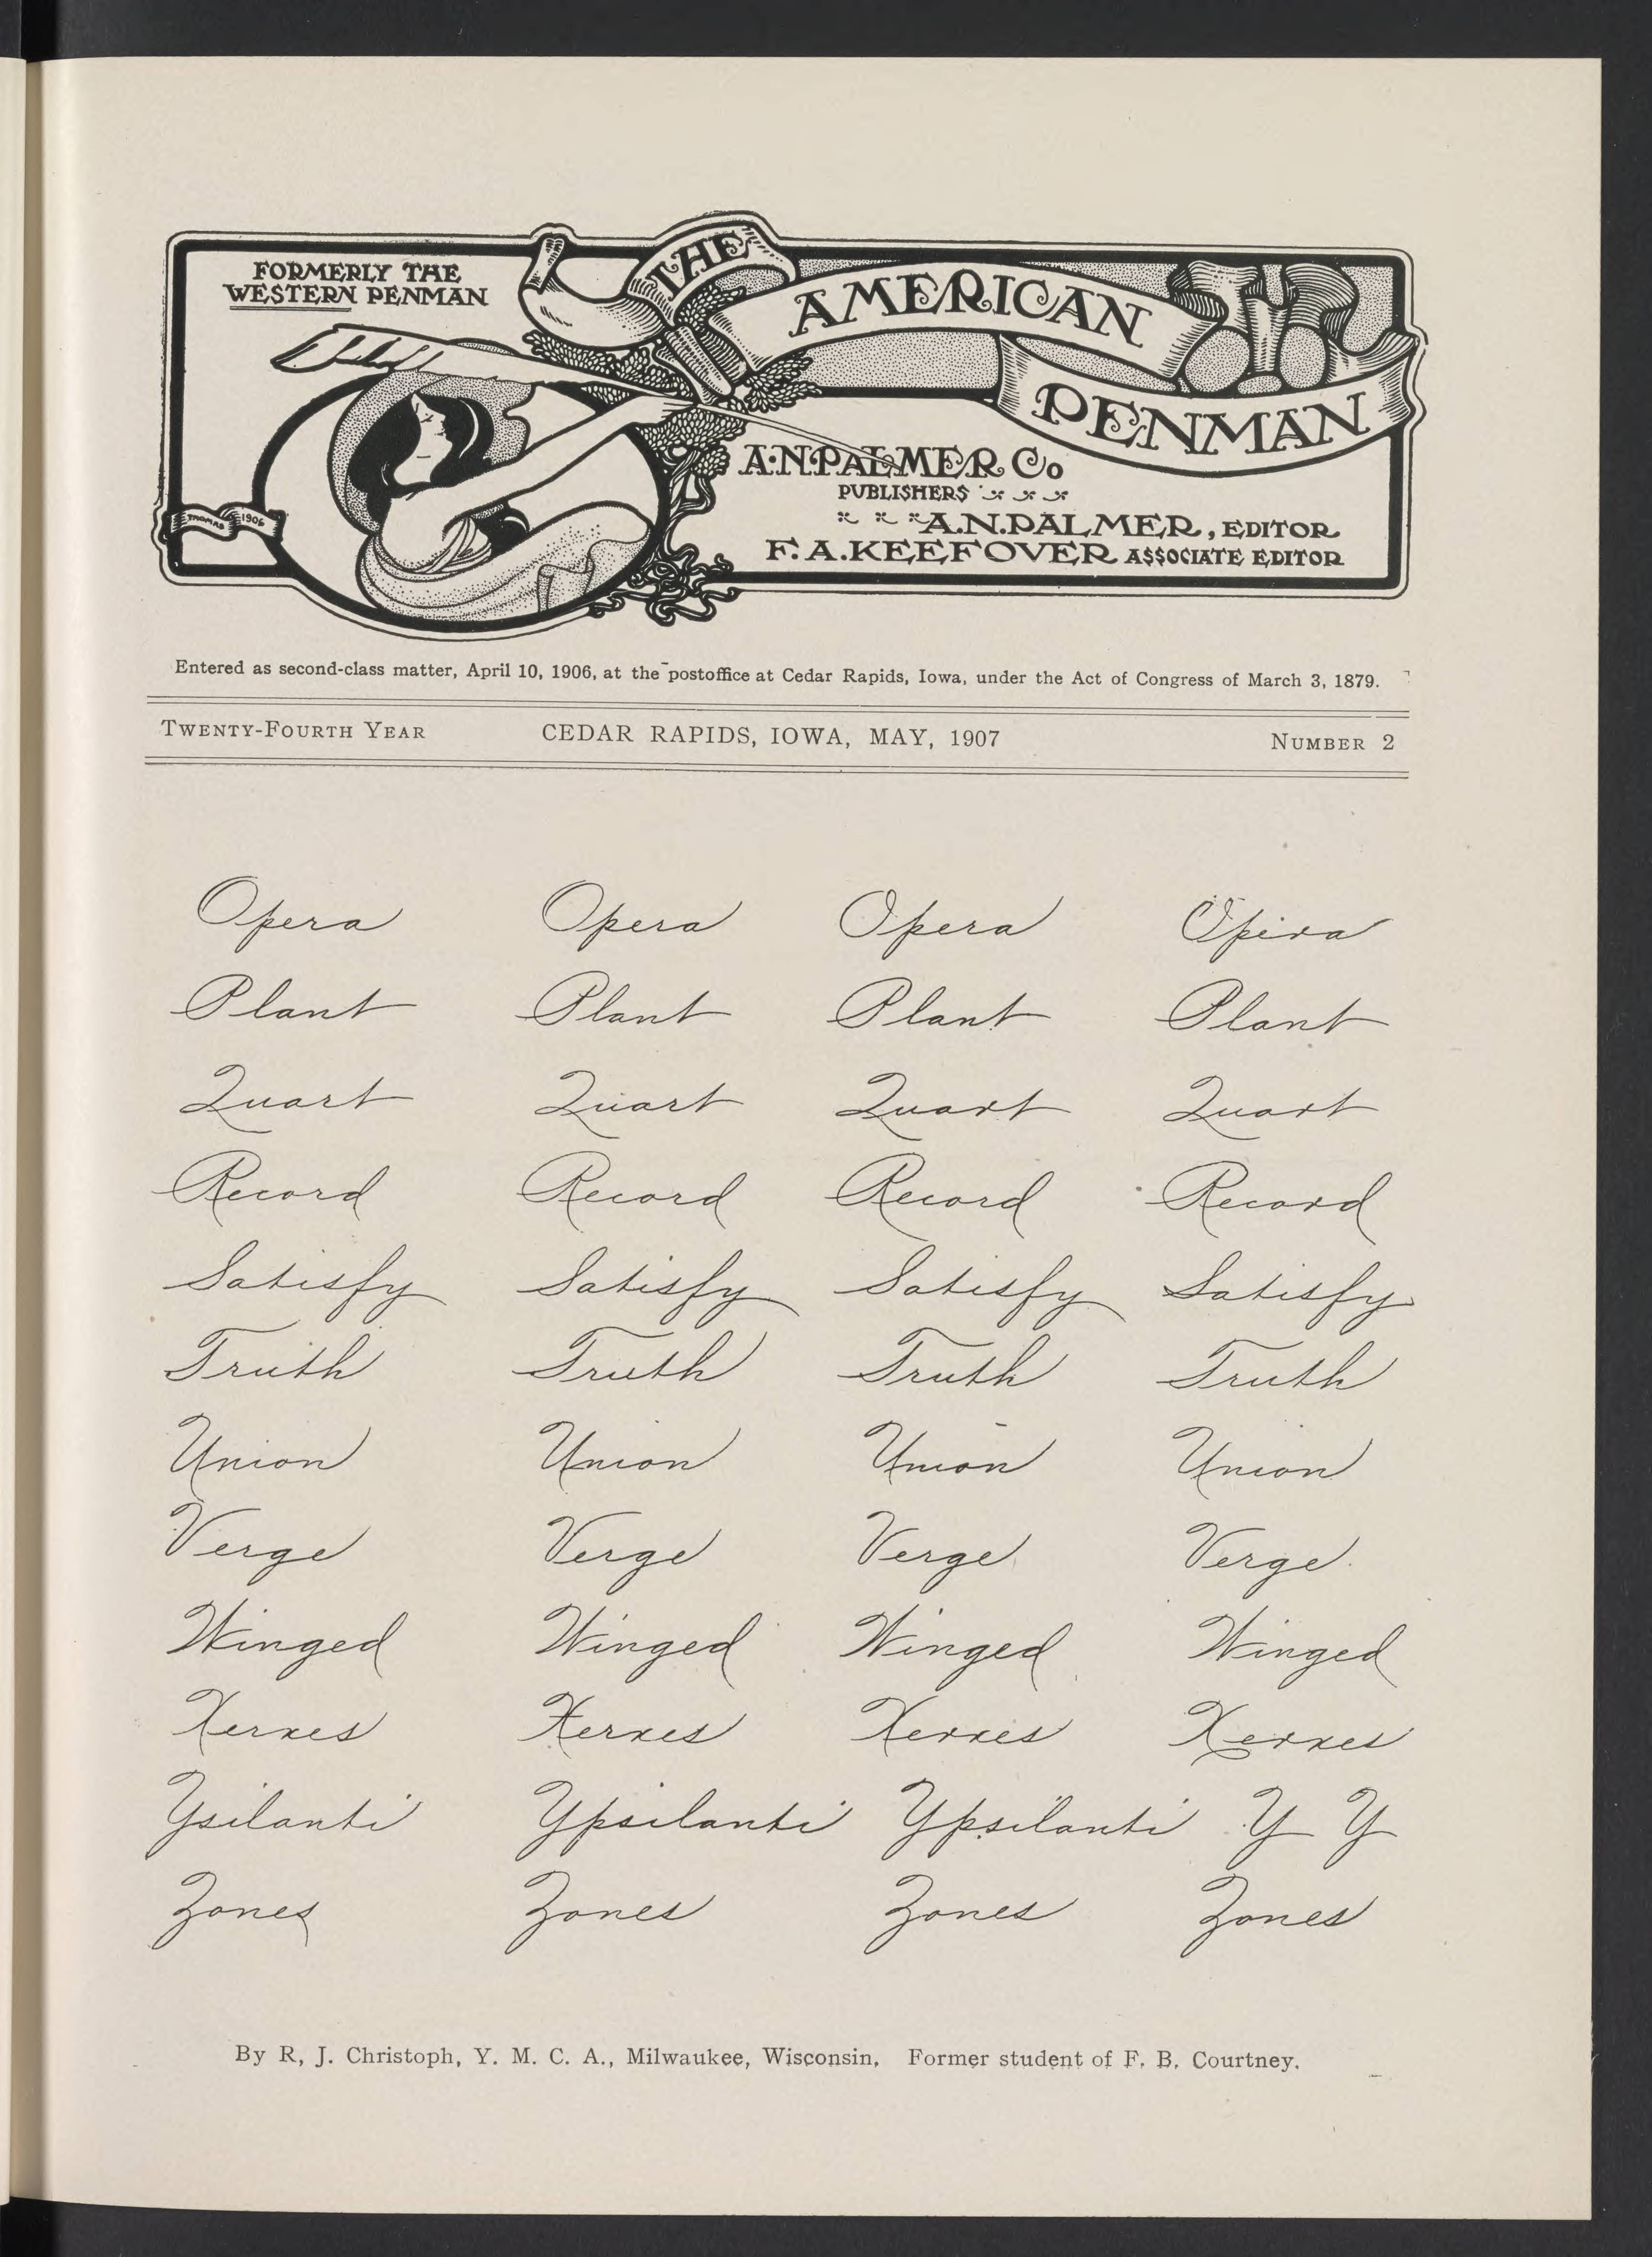 FORMERLY THE
WESTERN PENMAN
THE
AMERICAN
PENMAN
A.N.PALMER Co
PUBLISHERS
A.N.PALMER, EDITOR
F.A.KEEFOVER ASSOCIATE EDITOR
THOMAS 1906
Entered as second-class matter, April 10, 1906, at the postoffice at Cedar Rapids, Iowa, under the Act of Congress of March 3, 1879.
TWENTY-FOURTH YEAR CEDAR RAPIDS, IOWA, MAY, 1907 NUMBER 2
Opera Opera Opera Opera
Plant Plant Plant Plant
Quart Quart Quart Quart
Record Record Record Record
Satisfy Satisfy Satisfy Satisfy
Truth Truth Truth Truth
Union Union Union Union
Verge Verge Verge Verge
Winged Winged Winged Winged
Xerxes Xerxes Xerxes Xerxes
Ysilanti Ypsilanti Ypsilanti Y Y
Zones Zones Zones Zones
By R, J. Christoph, Y. M. C. A., Milwaukee, Wisconsin, Former student of F. B. Courtney.